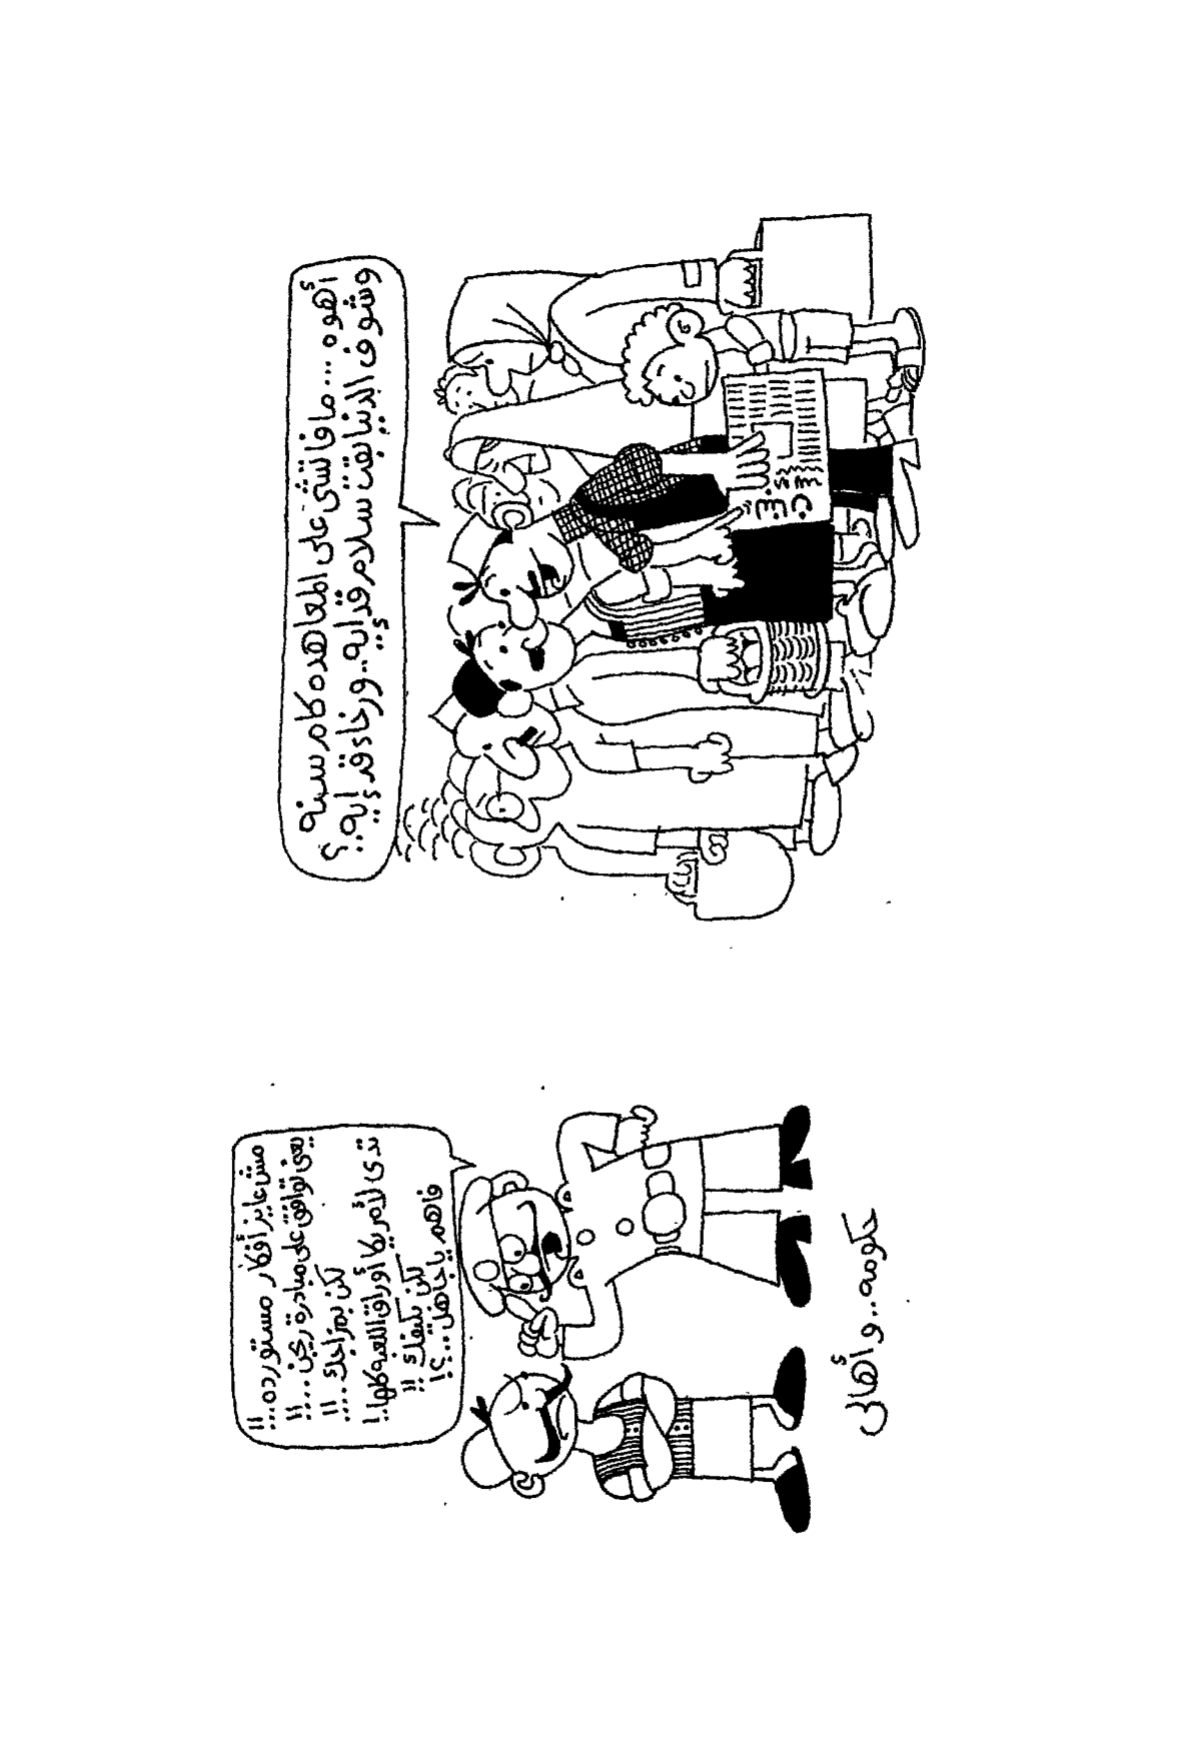 أهوه ... ما فاتش على المعاهده كام سنه
وشوف الدنيا بقت سلام قد ايه .. ورخاء قد ايه ..؟
مش عايز أفكار مستورده ...!!
يعنى توافق على مبادرة ريجن ....!!
لكن بمزاجك ....!!
تدى لأمريكا أوراق اللعبه كلها ..!
لكن بكيفك !!
فاهم يا جاهل ..؟!
حكومه .. وأهالى